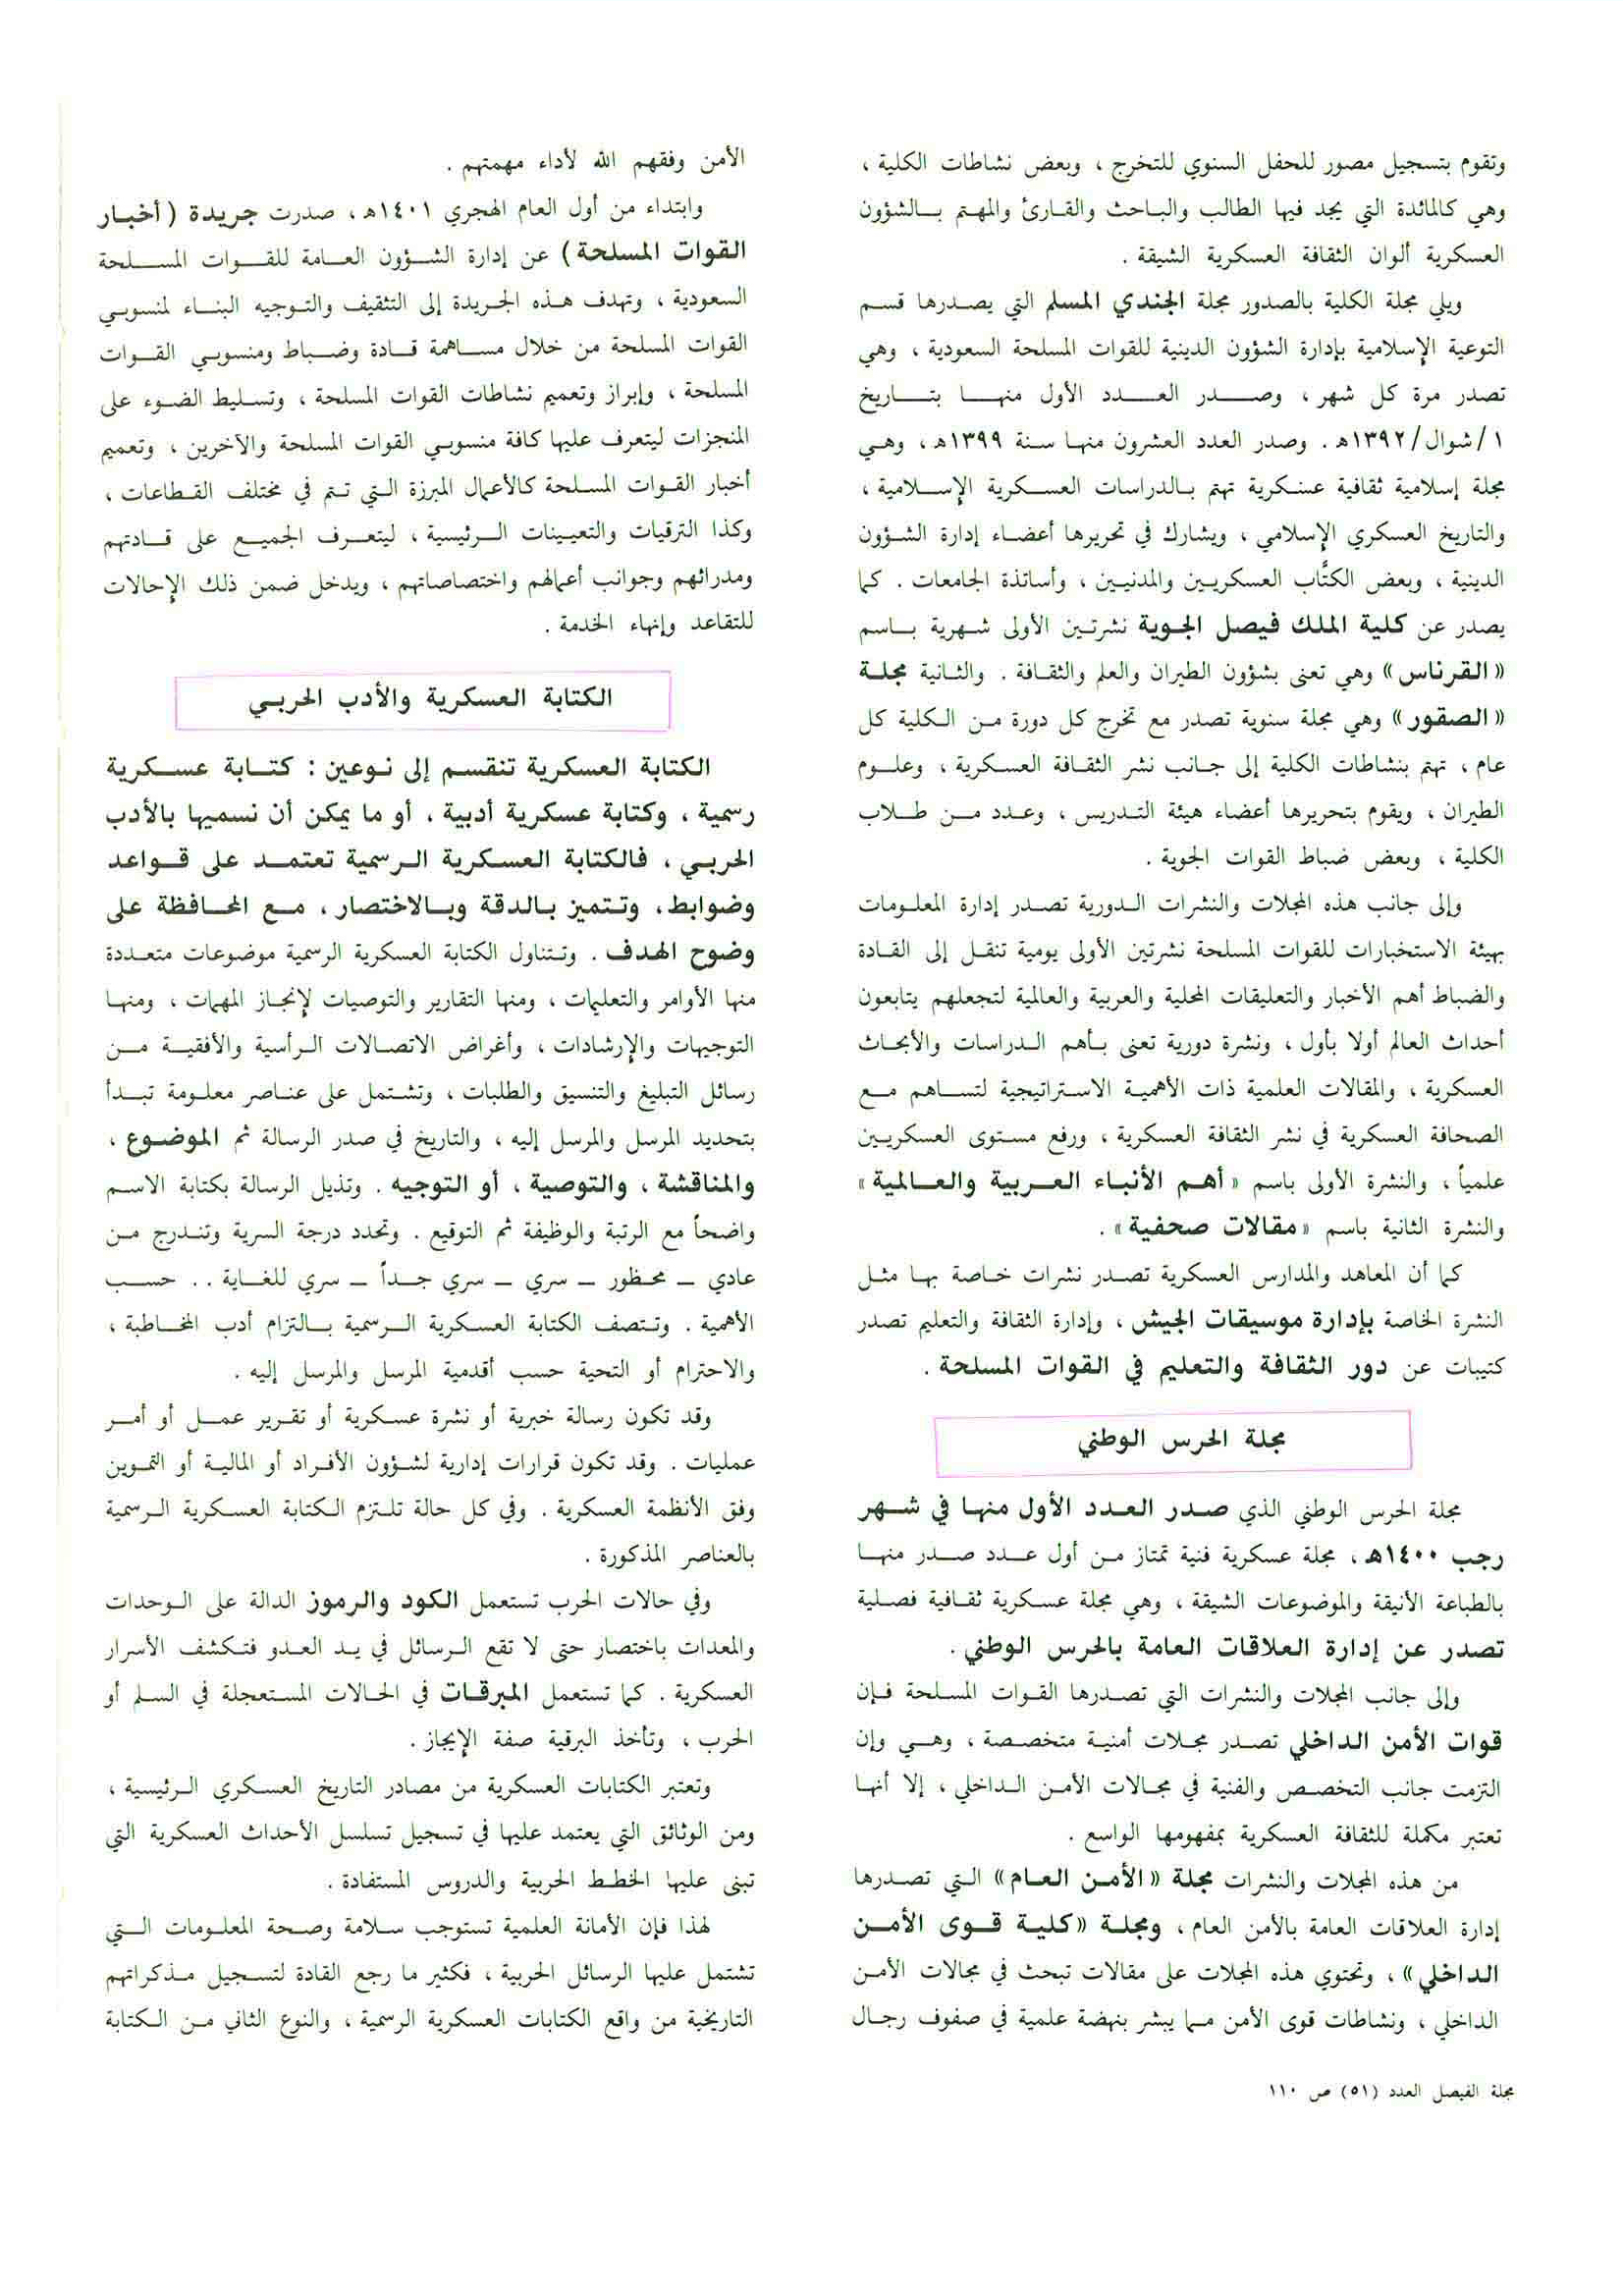 وتقوم بتسجيل مصور للحفل السنوي للتخرج ، وبعض نشاطات الكلية ،
وهي كالمائدة التي يجد فيها الطالب والباحث والقارئ والمهتم بالشؤون
العسكرية ألوان الثقافة العسكرية الشيقة .
ويلي مجلة الكلية بالصدور مجلة الجندي المسلم التي يصدرها قسم
التوعية الإسلامية بإدارة الشؤون الدينية للقوات المسلحة السعودية ، وهي
تصدر مرة كل شهر ، وصدر العدد الأول منها بتاريخ
١/شوال/١٣٩٢هـ . وصدر العدد العشرون منها سنة ١٣٩٩هـ ، وهي
مجلة إسلامية ثقافية عسكرية تهتم بالدراسات العسكرية الإسلامية ،
والتاريخ العسكري الإسلامي ، ويشارك في تحريرها أعضاء إدارة الشؤون
الدينية ، وبعض الكتَّاب العسكريين والمدنيين ، وأساتذة الجامعات . كما
يصدر عن كلية الملك فيصل الجوية نشرتين الأولى شهرية باسم
«القرناس» وهي تعنى بشؤون الطيران والعلم والثقافة . والثانية مجلة
«الصقور» وهي مجلة سنوية تصدر مع تخرج كل دورة من الكلية كل
عام ، تهتم بنشاطات الكلية إلى جانب نشر الثقافة العسكرية ، وعلوم
الطيران ، ويقوم بتحريرها أعضاء هيئة التدريس ، وعدد من طلاب
الكلية ، وبعض ضباط القوات الجوية .
وإلى جانب هذه المجلات والنشرات الدورية تصدر إدارة المعلومات
بهيئة الاستخبارات للقوات المسلحة نشرتين الأولى يومية تنقل إلى القادة
والضباط أهم الأخبار والتعليقات المحلية والعربية والعالمية لتجعلهم يتابعون
أحداث العالم أولا بأول ، ونشرة دورية تعنى بأهم الدراسات والأبحاث
العسكرية ، والمقالات العلمية ذات الأهمية الاستراتيجية لتساهم مع
الصحافة العسكرية في نشر الثقافة العسكرية ، ورفع مستوى العسكريين
علمياً ، والنشرة الأولى باسم «أهم الأنباء العربية والعالمية»
والنشرة الثانية باسم «مقالات صحفية» .
كما أن المعاهد والمدارس العسكرية تصدر نشرات خاصة بها مثل
النشرة الخاصة بإدارة موسيقات الجيش ، وإدارة الثقافة والتعليم تصدر
كتيبات عن دور الثقافة والتعليم في القوات المسلحة .
مجلة الحرس الوطني
مجلة الحرس الوطني الذي صدر العدد الأول منها في شهر
رجب ١٤٠٠هـ ، مجلة عسكرية فنية تمتاز من أول عدد صدر منها
بالطباعة الأنيقة والموضوعات الشيقة ، وهي مجلة عسكرية ثقافية فصلية
تصدر عن إدارة العلاقات العامة بالحرس الوطني .
وإلى جانب المجلات والنشرات التي تصدرها القوات المسلحة فإن
قوات الأمن الداخلي تصدر مجلات أمنية متخصصة ، وهي وإن
التزمت جانب التخصص والفنية في مجالات الأمن الداخلي ، إلا أنها
تعتبر مكملة للثقافة العسكرية بمفهومها الواسع .
من هذه المجلات والنشرات مجلة «الأمن العام» التي تصدرها
إدارة العلاقات العامة بالأمن العام ، ومجلة «كلية قوى الأمن
الداخلي» ، وتحتوي هذه المجلات على مقالات تبحث في مجالات الأمن
الداخلي ، ونشاطات قوى الأمن مما يبشر بنهضة علمية في صفوف رجال
الأمن وفقهم الله لأداء مهمتهم .
وابتداء من أول العام الهجري ١٤٠١هـ ، صدرت جريدة (أخبار
القوات المسلحة) عن إدارة الشؤون العامة للقوات المسلحة
السعودية ، وتهدف هذه الجريدة إلى التثقيف والتوجيه البناء لمنسوبي
القوات المسلحة من خلال مساهمة قادة وضباط ومنسوبي القوات
المسلحة ، وإبراز وتعميم نشاطات القوات المسلحة ، وتسليط الضوء على
المنجزات ليتعرف عليها كافة منسوبي القوات المسلحة والآخرين ، وتعميم
أخبار القوات المسلحة كالأعمال المبرزة التي تتم في مختلف القطاعات ،
وكذا الترقيات والتعيينات الرئيسية ، ليتعرف الجميع على قادتهم
ومدرائهم وجوانب أعمالهم واختصاصاتهم ، ويدخل ضمن ذلك الإحالات
للتقاعد وإنهاء الخدمة .
الكتابة العسكرية والأدب الحربي
الكتابة العسكرية تنقسم إلى نوعين : كتابة عسكرية
رسمية ، وكتابة عسكرية أدبية ، أو ما يمكن أن نسميها بالأدب
الحربي ، فالكتابة العسكرية الرسمية تعتمد على قواعد
وضوابط ، وتتميز بالدقة وبالاختصار ، مع المحافظة على
وضوح الهدف . وتتناول الكتابة العسكرية الرسمية موضوعات متعددة
منها الأوامر والتعليمات ، ومنها التقارير والتوصيات لإنجاز المهمات ، ومنها
التوجيهات والإرشادات ، وأغراض الاتصالات الرأسية والأفقية من
رسائل التبليغ والتنسيق والطلبات ، وتشتمل على عناصر معلومة تبدأ
بتحديد المرسل والمرسل إليه ، والتاريخ في صدر الرسالة ثم الموضوع ،
والمناقشة ، والتوصية ، أو التوجيه . وتذيل الرسالة بكتابة الاسم
واضحاً مع الرتبة والوظيفة ثم التوقيع . وتحدد درجة السرية وتندرج من
عادي ــ محظور ــ سري ــ سري جداً ــ سري للغاية .. حسب
الأهمية . وتتصف الكتابة العسكرية الرسمية بالتزام أدب المخاطبة ،
والاحترام أو التحية حسب أقدمية المرسل والمرسل إليه .
وقد تكون رسالة خبرية أو نشرة عسكرية أو تقرير عمل أو أمر
عمليات . وقد تكون قرارات إدارية لشؤون الأفراد أو المالية أو التموين
وفق الأنظمة العسكرية . وفي كل حالة تلتزم الكتابة العسكرية الرسمية
بالعناصر المذكورة .
وفي حالات الحرب تستعمل الكود والرموز الدالة على الوحدات
والمعدات باختصار حتى لا تقع الرسائل في يد العدو فتكشف الأسرار
العسكرية . كما تستعمل المبرقات في الحالات المستعجلة في السلم أو
الحرب ، وتأخذ البرقية صفة الإيجاز .
وتعتبر الكتابات العسكرية من مصادر التاريخ العسكري الرئيسية ،
ومن الوثائق التي يعتمد عليها في تسجيل تسلسل الأحداث العسكرية التي
تبنى عليها الخطط الحربية والدروس المستفادة .
لهذا فإن الأمانة العلمية تستوجب سلامة وصحة المعلومات التي
تشتمل عليها الرسائل الحربية ، فكثير ما رجع القادة لتسجيل مذكراتهم
التاريخية من واقع الكتابات العسكرية الرسمية ، والنوع الثاني من الكتابة
مجلة الفيصل العدد (٥١) ص ١١٠